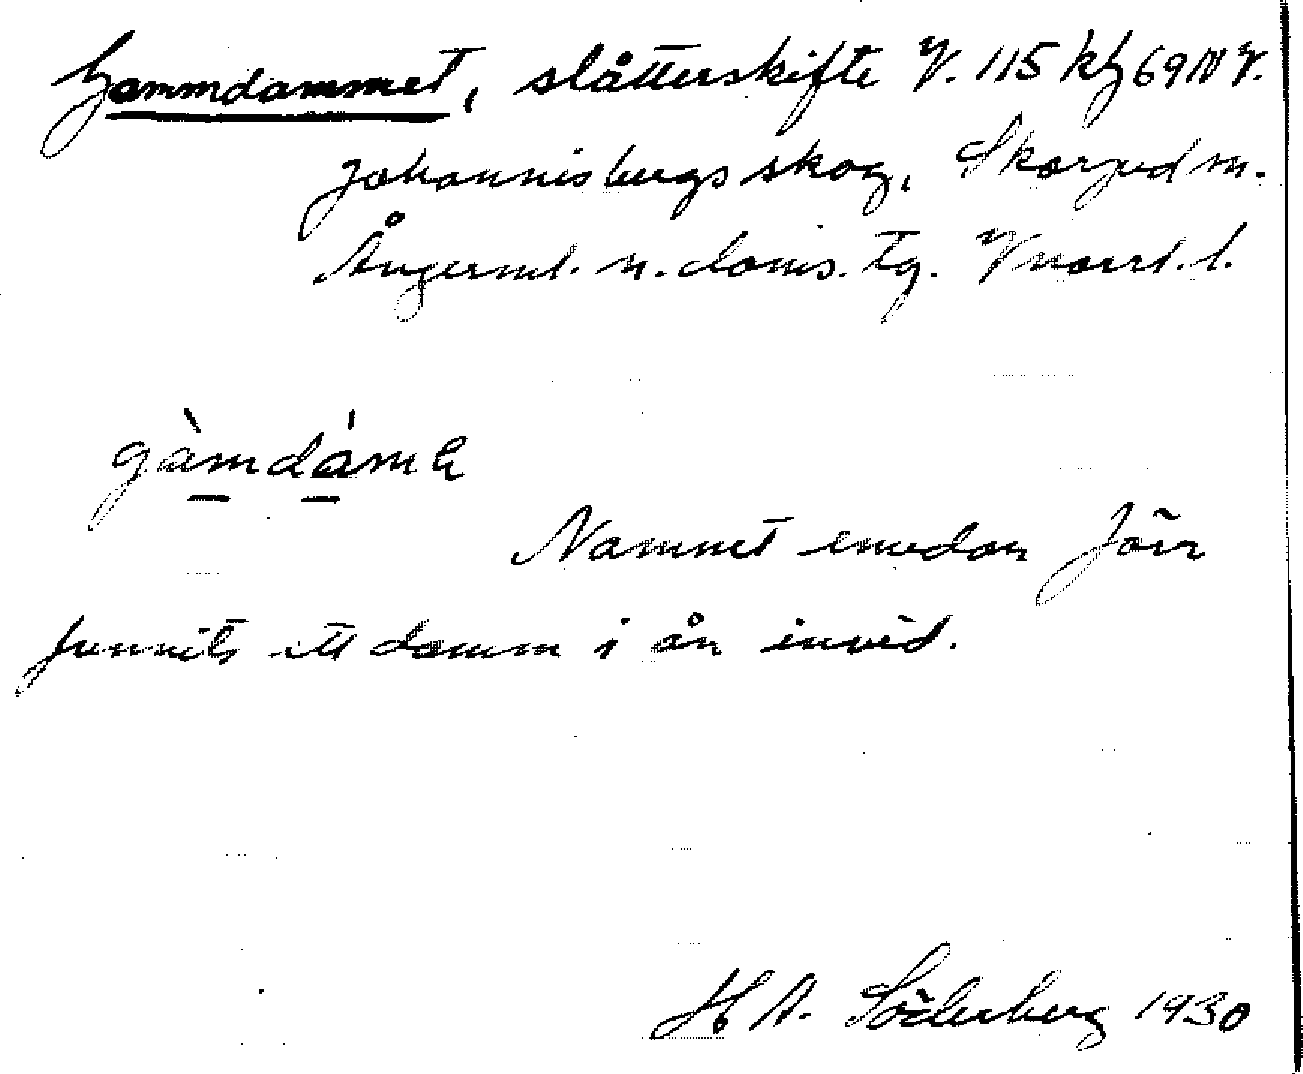 Gammdammet, slåtterskifte V. 115 kf 69 NV.
Johannisbergs skog, Skorped sn.
Ångerml. n. doms. tg. Vnorrl. l.
gàmdámɐ
Namnet emedan förr
funnits ett damm i ån invid.
H A. Söderberg 1930